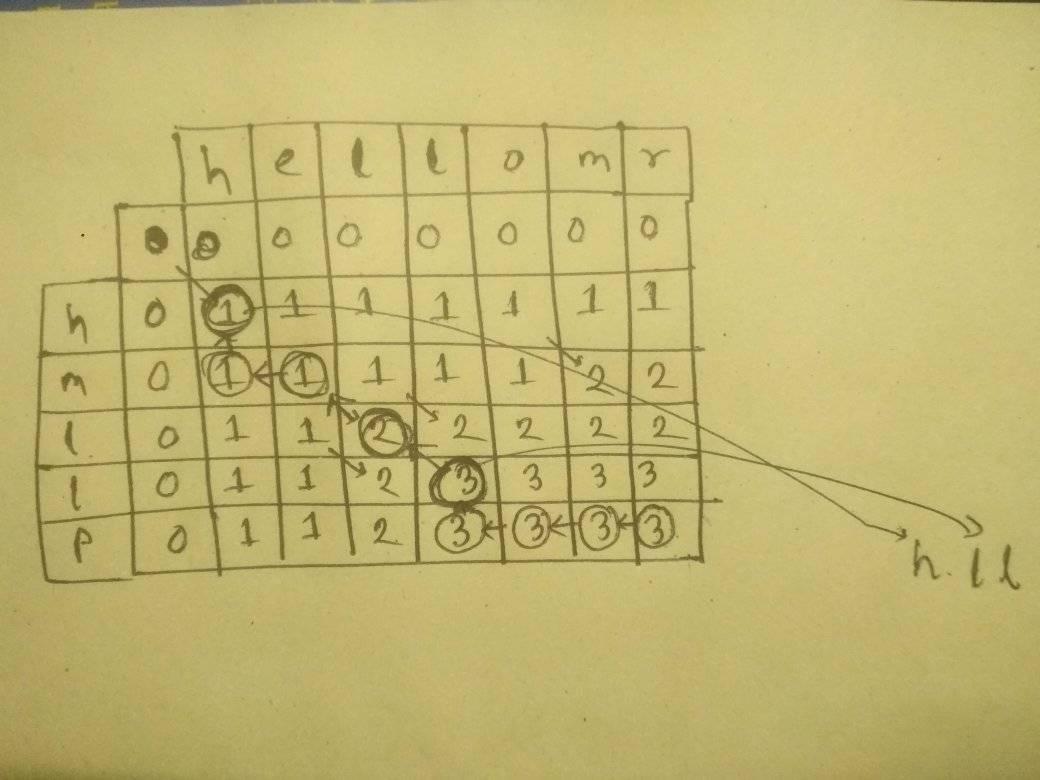 h e l l o m r
0 0 0 0 0 0 0 0
h 0 1 1 1 1 1 1 1
m 0 1 1 1 1 1 2 2
l 0 1 1 2 2 2 2 2
l 0 1 1 2 3 3 3 3
p 0 1 1 2 3 3 3 3
h. l l